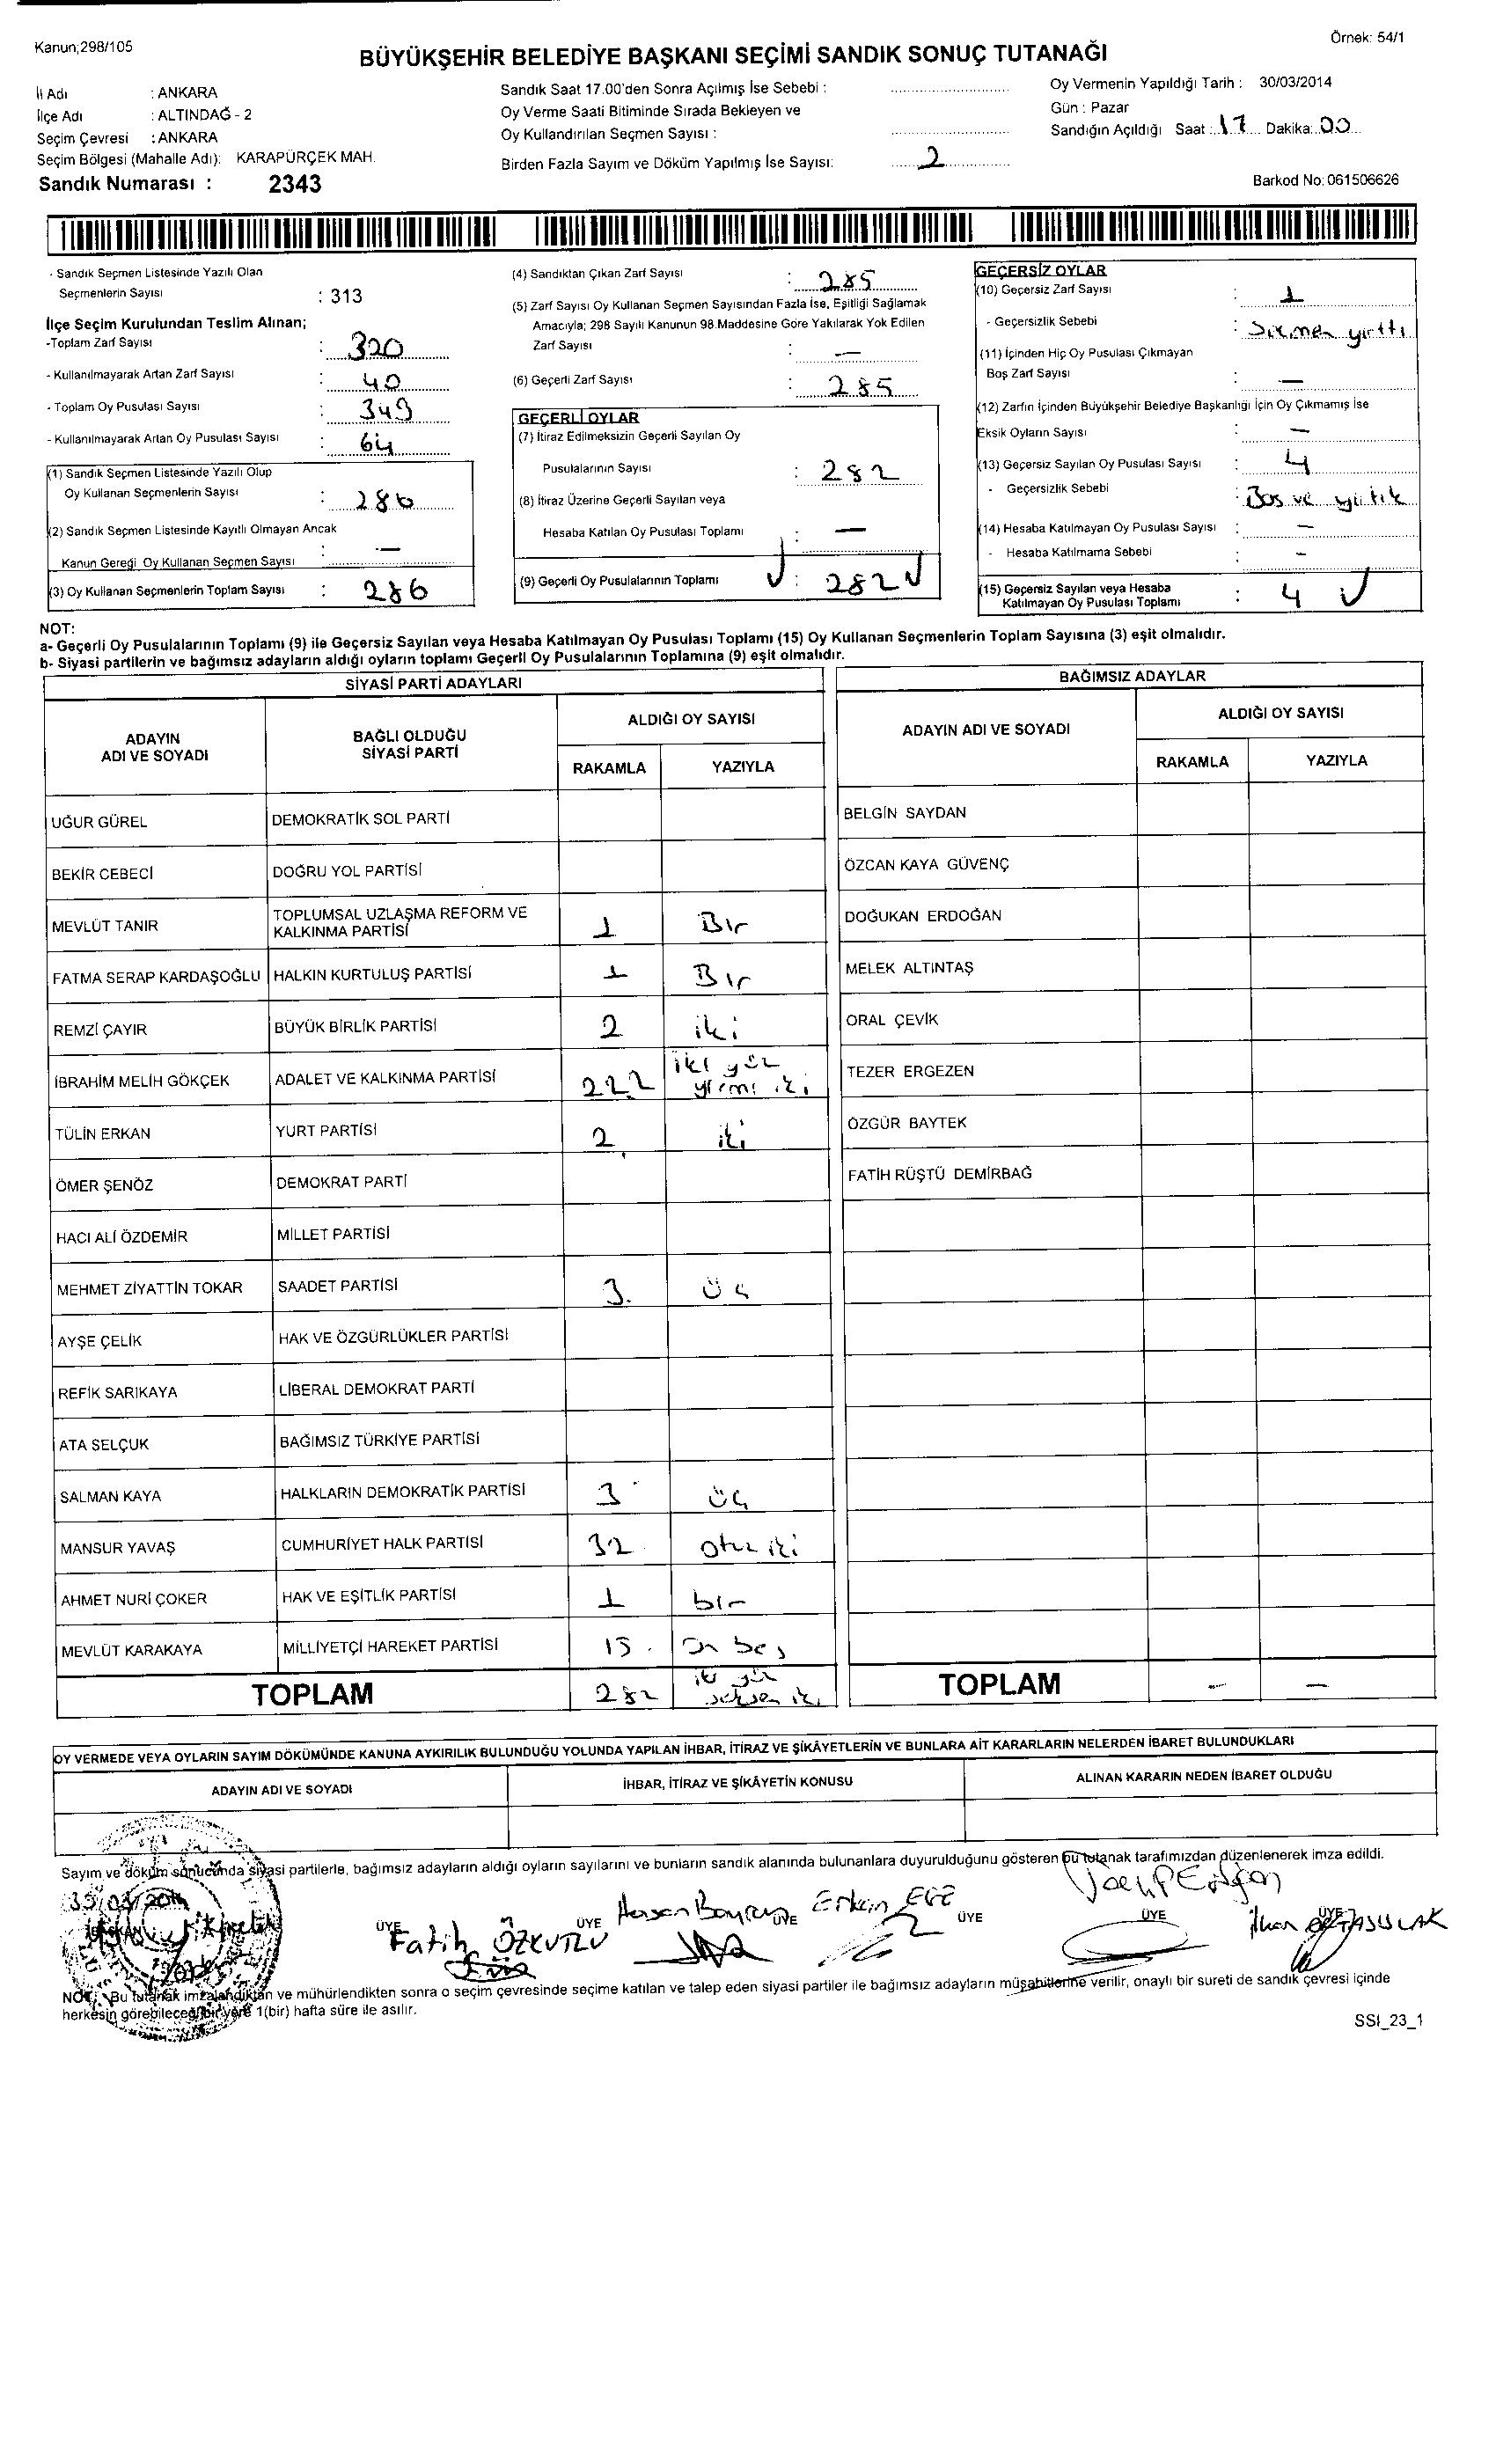 Kanun;298/105
Örnek: 54/1
BÜYÜKŞEHİR BELEDİYE BAŞKANI SEÇİMİ SANDIK SONUÇ TUTANAĞI
İl Adı : ANKARA
İlçe Adı : ALTINDAĞ - 2
Seçim Çevresi : ANKARA
Seçim Bölgesi (Mahalle Adı): KARAPÜRÇEK MAH.
Sandık Numarası : 2343
Sandık Saat 17.00'den Sonra Açılmış İse Sebebi :
Oy Verme Saati Bitiminde Sırada Bekleyen ve
Oy Kullandırılan Seçmen Sayısı :
Birden Fazla Sayım ve Döküm Yapılmış İse Sayısı: 2
Oy Vermenin Yapıldığı Tarih : 30/03/2014
Gün : Pazar
Sandığın Açıldığı Saat : 17 Dakika: 00
Barkod No: 061506626
- Sandık Seçmen Listesinde Yazılı Olan
Seçmenlerin Sayısı : 313
İlçe Seçim Kurulundan Teslim Alınan;
-Toplam Zarf Sayısı : 320
- Kullanılmayarak Artan Zarf Sayısı : 40
- Toplam Oy Pusulası Sayısı : 349
- Kullanılmayarak Artan Oy Pusulası Sayısı : 64
(1) Sandık Seçmen Listesinde Yazılı Olup
Oy Kullanan Seçmenlerin Sayısı : 286
(2) Sandık Seçmen Listesinde Kayıtlı Olmayan Ancak
Kanun Gereği Oy Kullanan Seçmen Sayısı : —
(3) Oy Kullanan Seçmenlerin Toplam Sayısı : 286
(4) Sandıktan Çıkan Zarf Sayısı : 285
(5) Zarf Sayısı Oy Kullanan Seçmen Sayısından Fazla İse, Eşitliği Sağlamak
Amacıyla; 298 Sayılı Kanunun 98.Maddesine Göre Yakılarak Yok Edilen
Zarf Sayısı : —
(6) Geçerli Zarf Sayısı : 285
GEÇERLİ OYLAR
(7) İtiraz Edilmeksizin Geçerli Sayılan Oy
Pusulalarının Sayısı : 282
(8) İtiraz Üzerine Geçerli Sayılan veya
Hesaba Katılan Oy Pusulası Toplamı : —
(9) Geçerli Oy Pusulalarının Toplamı : 282
GEÇERSİZ OYLAR
(10) Geçersiz Zarf Sayısı : 1
- Geçersizlik Sebebi : Seçmen yırttı
(11) İçinden Hiç Oy Pusulası Çıkmayan
Boş Zarf Sayısı : —
(12) Zarfın İçinden Büyükşehir Belediye Başkanlığı İçin Oy Çıkmamış İse
Eksik Oyların Sayısı : —
(13) Geçersiz Sayılan Oy Pusulası Sayısı : 4
- Geçersizlik Sebebi : Boş ve yırtık
(14) Hesaba Katılmayan Oy Pusulası Sayısı : —
- Hesaba Katılmama Sebebi : —
(15) Geçersiz Sayılan veya Hesaba
Katılmayan Oy Pusulası Toplamı : 4
NOT:
a- Geçerli Oy Pusulalarının Toplamı (9) ile Geçersiz Sayılan veya Hesaba Katılmayan Oy Pusulası Toplamı (15) Oy Kullanan Seçmenlerin Toplam Sayısına (3) eşit olmalıdır.
b- Siyasi partilerin ve bağımsız adayların aldığı oyların toplamı Geçerli Oy Pusulalarının Toplamına (9) eşit olmalıdır.
SİYASİ PARTİ ADAYLARI
ADAYIN ADI VE SOYADI BAĞLI OLDUĞU SİYASİ PARTİ ALDIĞI OY SAYISI
RAKAMLA YAZIYLA
UĞUR GÜREL DEMOKRATİK SOL PARTİ
BEKİR CEBECİ DOĞRU YOL PARTİSİ
MEVLÜT TANIR TOPLUMSAL UZLAŞMA REFORM VE KALKINMA PARTİSİ 1 Bir
FATMA SERAP KARDAŞOĞLU HALKIN KURTULUŞ PARTİSİ 1 Bir
REMZİ ÇAYIR BÜYÜK BİRLİK PARTİSİ 2 iki
İBRAHİM MELİH GÖKÇEK ADALET VE KALKINMA PARTİSİ 222 iki yüz yirmi iki
TÜLİN ERKAN YURT PARTİSİ 2 iki
ÖMER ŞENÖZ DEMOKRAT PARTİ
HACI ALİ ÖZDEMİR MİLLET PARTİSİ
MEHMET ZİYATTİN TOKAR SAADET PARTİSİ 3 üç
AYŞE ÇELİK HAK VE ÖZGÜRLÜKLER PARTİSİ
REFİK SARIKAYA LİBERAL DEMOKRAT PARTİ
ATA SELÇUK BAĞIMSIZ TÜRKİYE PARTİSİ
SALMAN KAYA HALKLARIN DEMOKRATİK PARTİSİ 3 üç
MANSUR YAVAŞ CUMHURİYET HALK PARTİSİ 32 otuz iki
AHMET NURİ ÇOKER HAK VE EŞİTLİK PARTİSİ 1 bir
MEVLÜT KARAKAYA MİLLİYETÇİ HAREKET PARTİSİ 15 On beş
TOPLAM 282 iki yüz seksen iki
BAĞIMSIZ ADAYLAR
ADAYIN ADI VE SOYADI ALDIĞI OY SAYISI
RAKAMLA YAZIYLA
BELGİN SAYDAN
ÖZCAN KAYA GÜVENÇ
DOĞUKAN ERDOĞAN
MELEK ALTINTAŞ
ORAL ÇEVİK
TEZER ERGEZEN
ÖZGÜR BAYTEK
FATİH RÜŞTÜ DEMİRBAĞ
TOPLAM — —
OY VERMEDE VEYA OYLARIN SAYIM DÖKÜMÜNDE KANUNA AYKIRILIK BULUNDUĞU YOLUNDA YAPILAN İHBAR, İTİRAZ VE ŞİKÂYETLERİN VE BUNLARA AİT KARARLARIN NELERDEN İBARET BULUNDUKLARI
ADAYIN ADI VE SOYADI İHBAR, İTİRAZ VE ŞİKÂYETİN KONUSU ALINAN KARARIN NEDEN İBARET OLDUĞU
Sayım ve döküm sonucunda siyasi partilerle, bağımsız adayların aldığı oyların sayılarını ve bunların sandık alanında bulunanlara duyurulduğunu gösteren bu tutanak tarafımızdan düzenlenerek imza edildi.
BAŞKAN ÜYE ÜYE ÜYE ÜYE ÜYE ÜYE
Fatih ÖZKUTLU Hasan Erkin EGE
NOT: Bu tutanak imzalandıktan ve mühürlendikten sonra o seçim çevresinde seçime katılan ve talep eden siyasi partiler ile bağımsız adayların müşahitlerine verilir, onaylı bir sureti de sandık çevresi içinde
herkesin görebileceği bir yere 1(bir) hafta süre ile asılır.
SSI_23_1